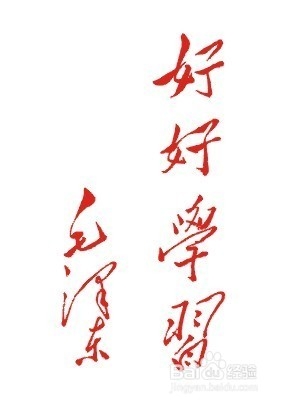 好好學習
毛泽东
Baidu经验
jingyan.baidu.com